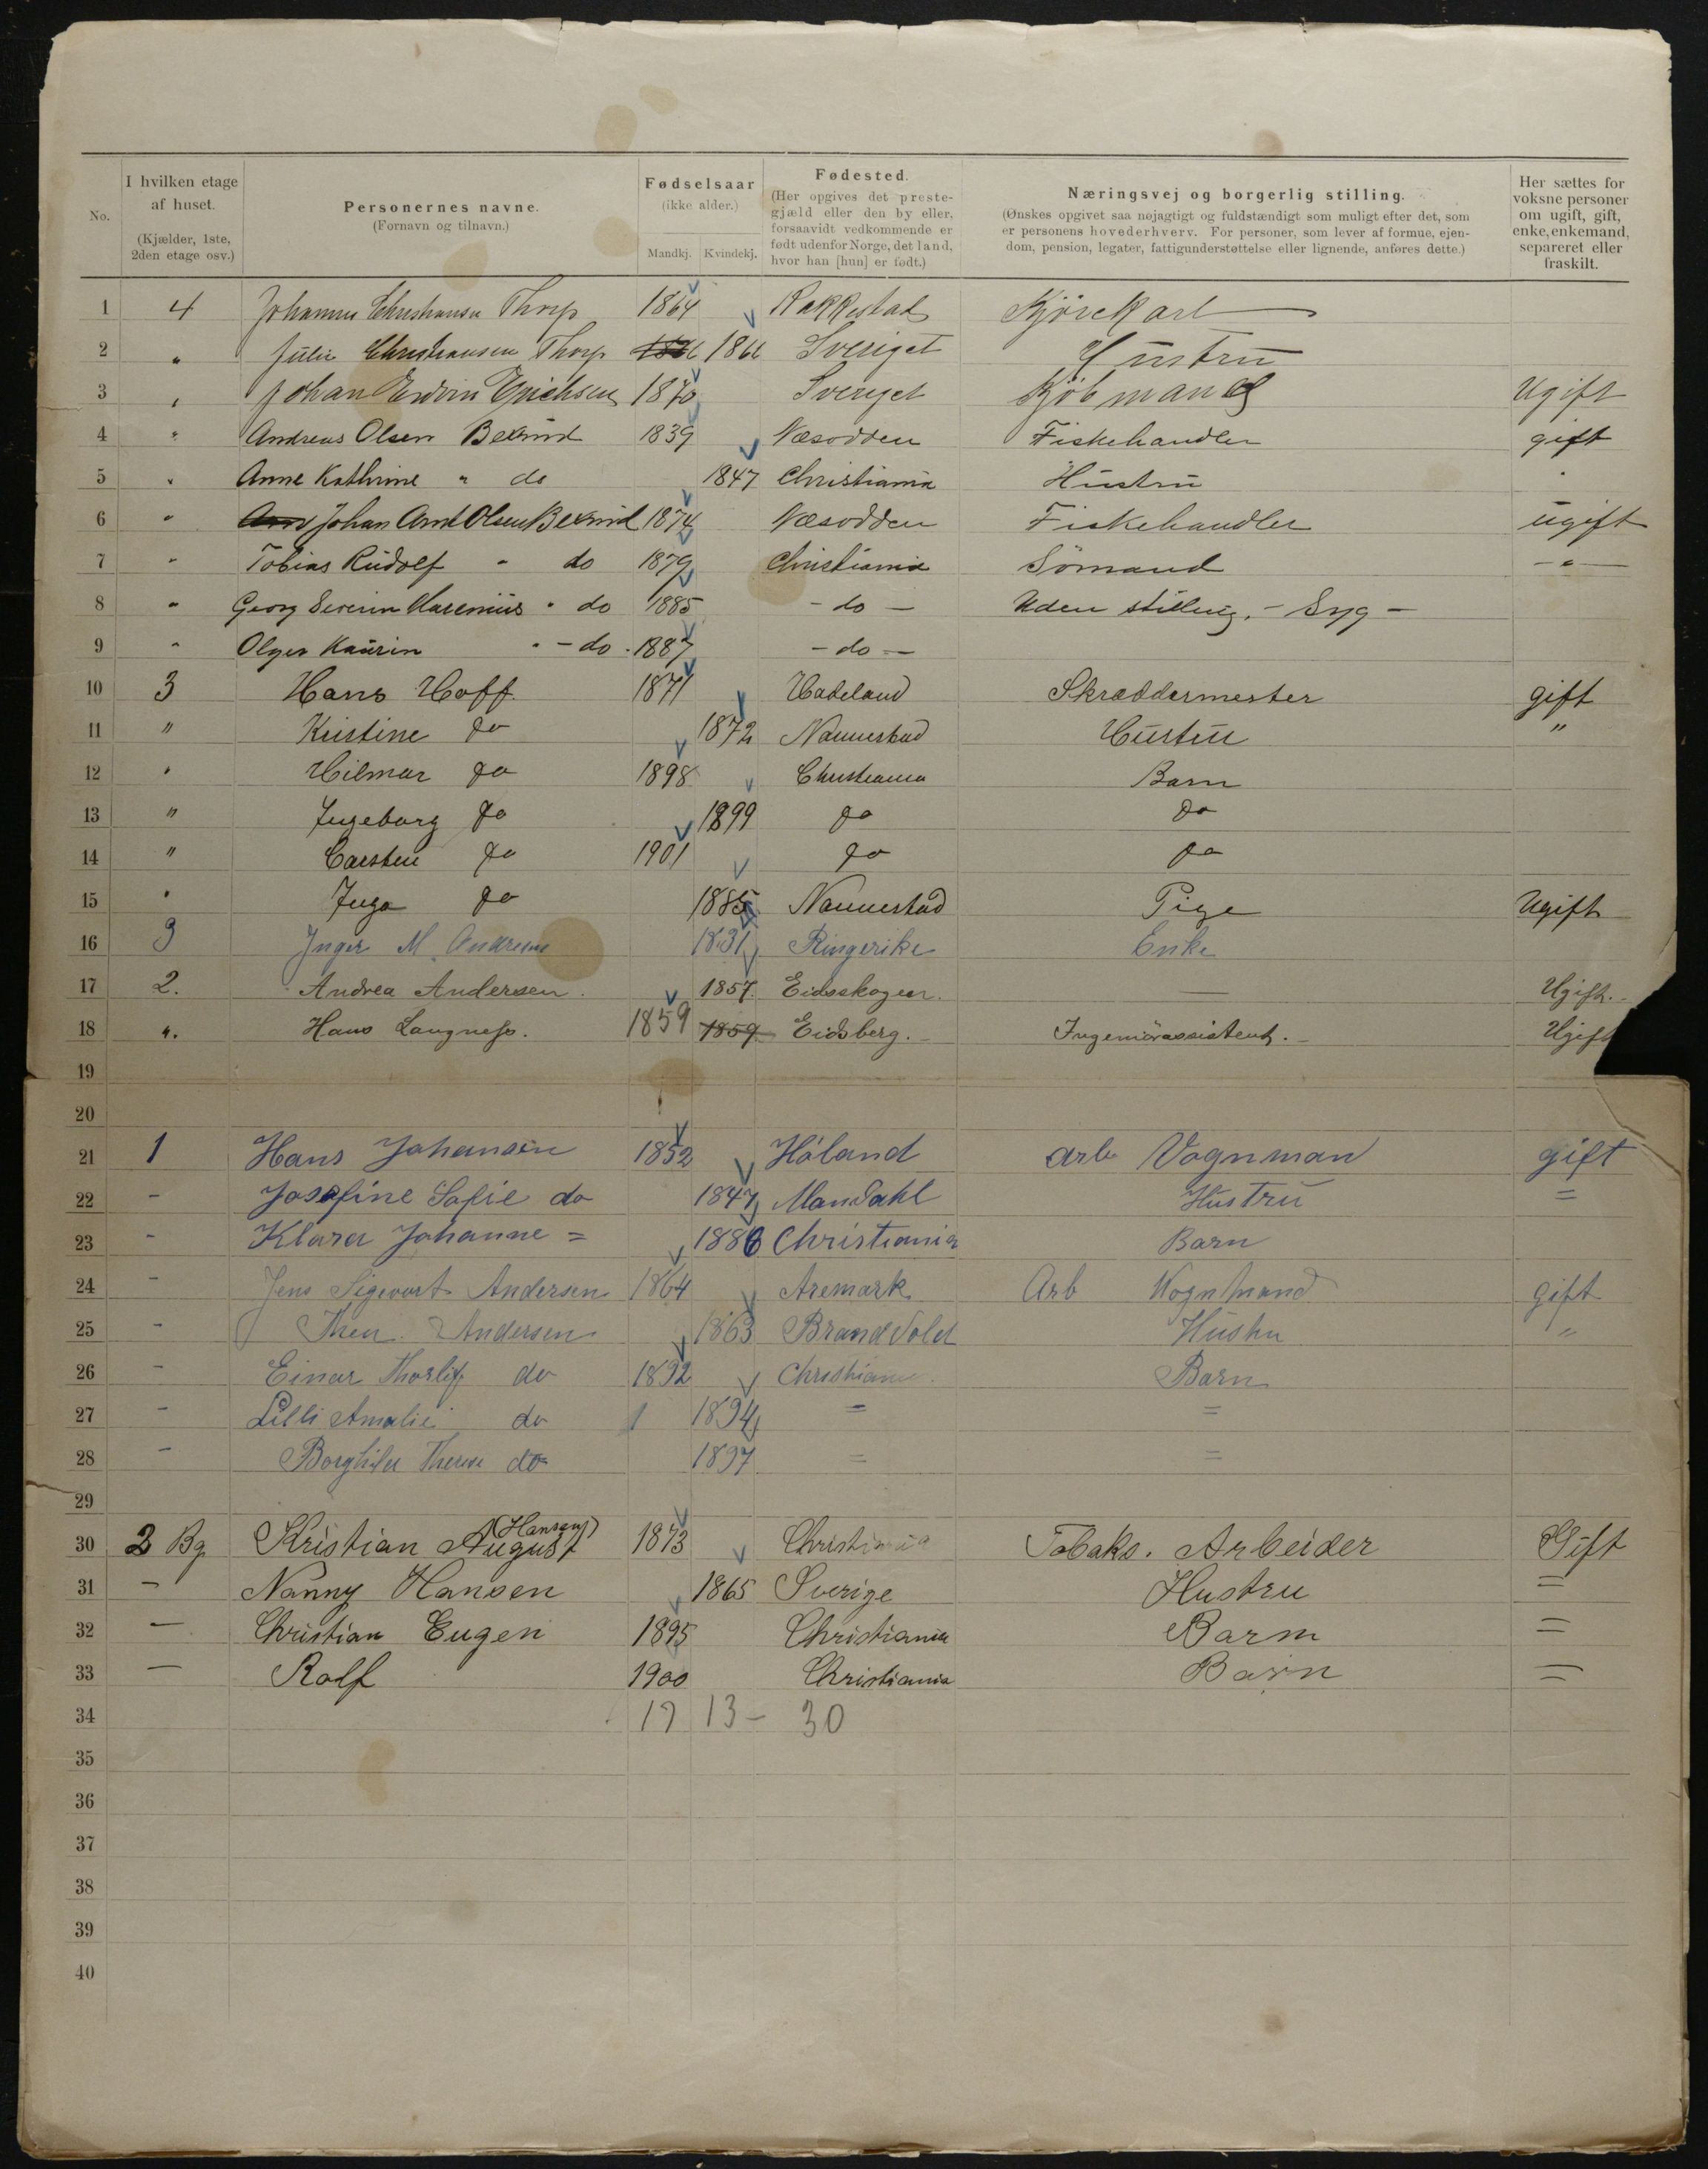 No.
I hvilken etage af huset. (Kjælder, 1ste, 2den etage osv.)
Personernes navne. (Fornavn og tilnavn.)
Fødselsaar (ikke alder.) Mandkj. Kvindekj.
Fødested. (Her opgives det prestegjæld eller den by eller, forsaavidt vedkommende er født udenfor Norge, det land, hvor han [hun] er født.)
Næringsvej og borgerlig stilling. (Ønskes opgivet saa nøjagtigt og fuldstændigt som muligt efter det, som er personens hovederhverv. For personer, som lever af formue, ejendom, pension, legater, fattigunderstøttelse eller lignende, anføres dette.)
Her sættes for voksne personer om ugift, gift, enke, enkemand, separeret eller fraskilt.
1 4 Johannes Christiansen Thorp 1864 Rakkestad Kjørekarl
2 " Julie Christiansen Thorp 1866 Sveriget Hustru
3 " Johan Edvin Erichsen 1870 Sveriget Kjøbmand Ugift
4 " Andreas Olsen 1839 Næsodden Fiskehandler gift
5 " Anne Kathrine " do 1847 Christiania Hustru "
6 " Johan Arnt Olsen 1874 Næsodden Fiskehandler ugift
7 " Tobias Rudolf " do 1879 Christiania Sömand - " -
8 " Georg Severin Marenius " do 1885 - do - Uden stilling. - Syg -
9 " Olger Kaurin " - do - 1887 - do -
10 3 Hans Hoff 1871 Hadeland Skræddermester gift
11 " Kristine do 1872 Nannestad Hustru "
12 " Hilmar do 1898 Christiania Barn
13 " Ingeborg do 1899 do do
14 " Carsten do 1901 do do
15 " Inga do 1885 Nannestad Pige Ugift
16 3 Inger M. Andresen 1831 Ringerike Enke
17 2. Andrea Andersen. 1857. Eidsskogen. — Ugift. -
18 ". Hans Langness. 1859 1859 Eidsberg. - Ingeniørassistent. - Ugift
19
20
21 1 Hans Johansen 1852 Höland Arb Vognman gift
22 - Josefine Sofie do 1847 Mandahl Hustru =
23 - Klara Johanne = 1886 Christiania Barn
24 - Jens Sigevart Andersen 1864 Aremark Arb Vognmand gift
25 - Thea Andersen 1863 Brandvold Hustru "
26 - Einar Thorlif do 1892 Christiania Barn
27 - Lilli Amalie do 1894 = =
28 - Borghild Therese do 1897 = =
29
30 2 Bg Kristian August (Hansen) 1873 Christiania Tobaks. Arbeider Gift
31 - Nanny Hansen 1865 Sverige Hustru =
32 - Christian Eugen 1895 Christiania Barn =
33 - Rolf 1900 Christiania Barn =
34 17 13 - 30
35
36
37
38
39
40